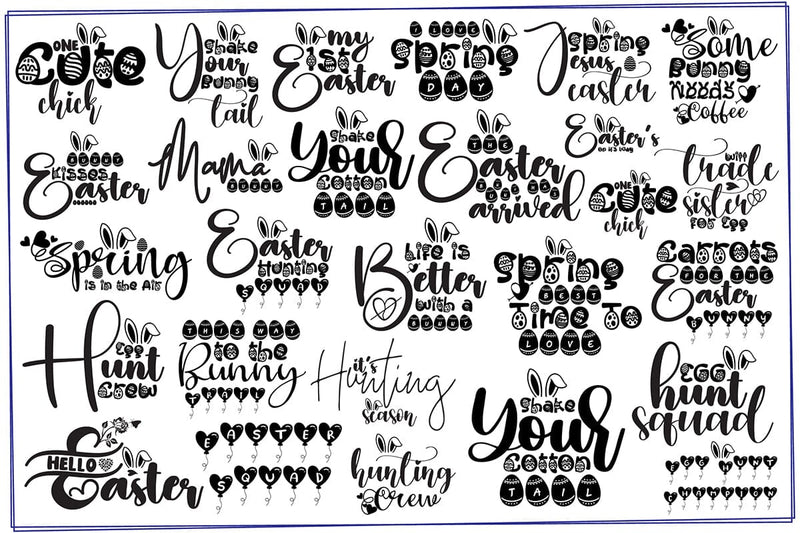 ONE
Cute
chick
Shake
Your
Bunny
tail
my
1st
Easter
I LOVE
Spring
DAY
Spring
Jesus
easter
Some
Bunny
Needs
Coffee
BUNNY
Kisses
Easter
Mama
BUNNY
Shake
Your
Cotton
TAIL
THE
Easter
BUNNY HAS
arrived
Easter's
on its way
ONE
Cute
chick
will
trade
sister
FOR EGG
Spring
is in the Air
Easter
Hunting
SQUAD
Life is
Better
with a
BUNNY
Spring
BEST
Time To
LOVE
Carrots
TO THE
Easter
BUNNY
Egg
Hunt
Crew
THIS WAY
to the
Bunny
TRAIL
it's
Hunting
season
Shake
Your
Cotton
TAIL
EGG
hunt
squad
HELLO
Easter
EASTER
SQUAD
hunting
Crew
EGG HUNT
CHAMPION